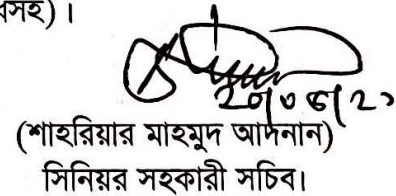 সহ)।
২০/০৬/২১
(শাহরিয়ার মাহমুদ আদনান)
সিনিয়র সহকারী সচিব।